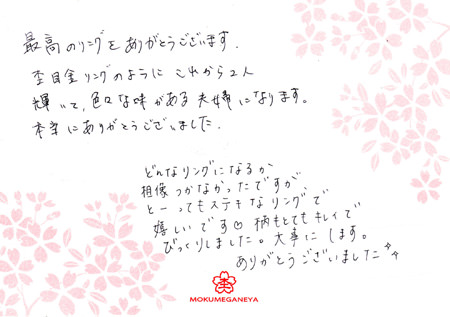 最高のリングをありがとうございます.
杢目金リングのように これから2人
輝いて、色々な味がある夫婦になります。
本当にありがとうございました.
どんなリングになるか
相像つかなかったですが
とーってもステキなリングで
嬉しいです♡柄もとてもキレイで
びっくりしました。大事にします。
ありがとうございました
杢
MOKUMEGANEYA